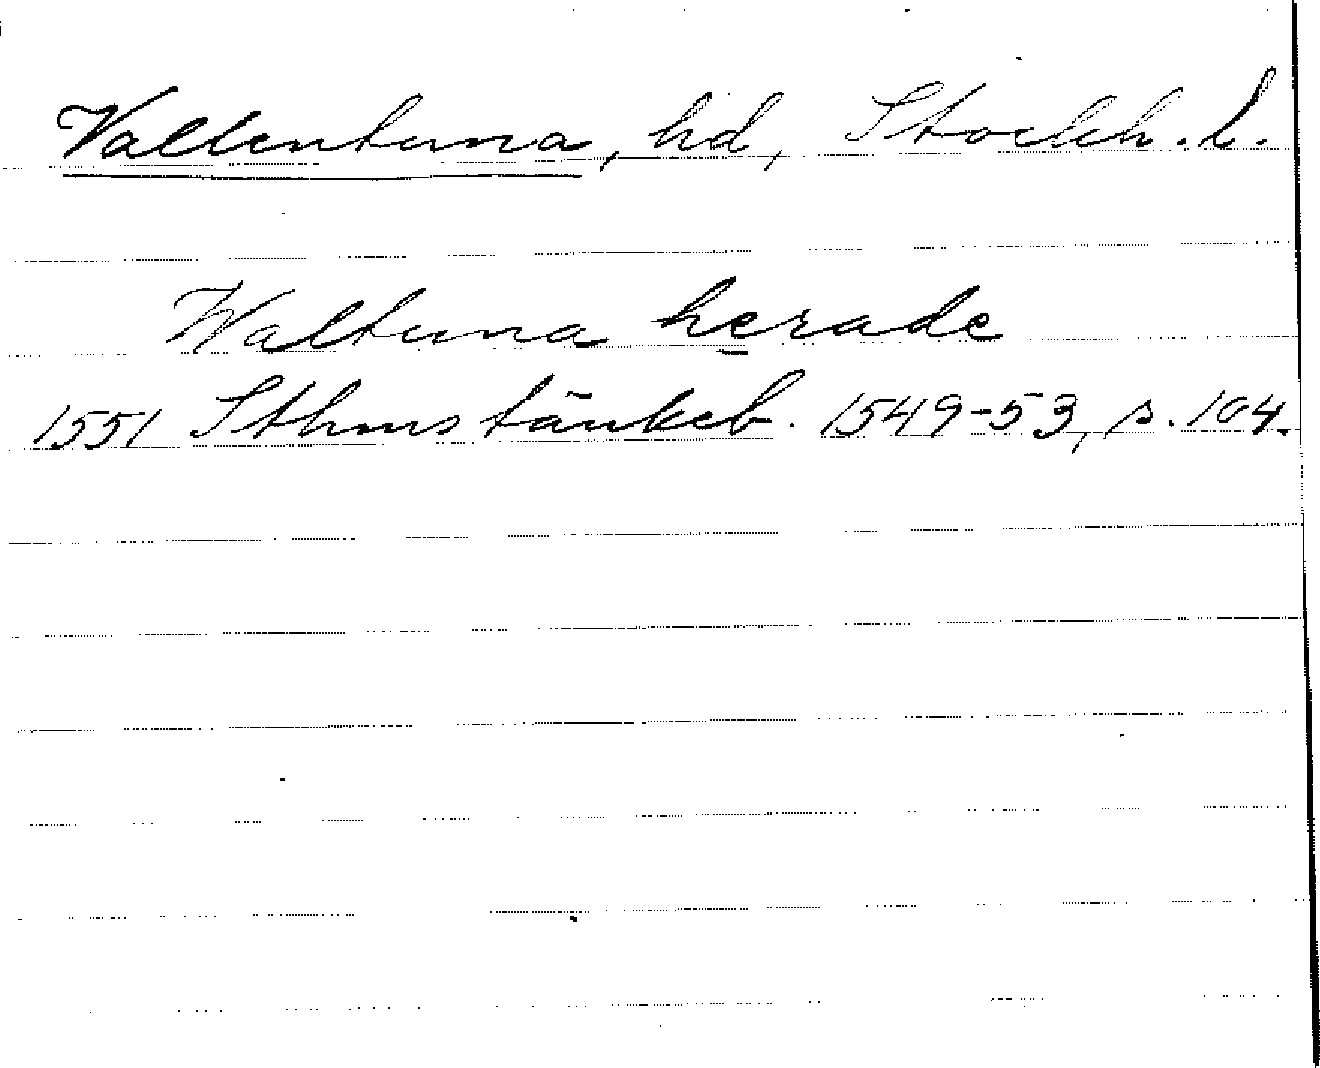 Vallentuna, hd, Stockh. l.
Waltuna herade
1551 Sthms tänkeb. 1549-53, s. 104.